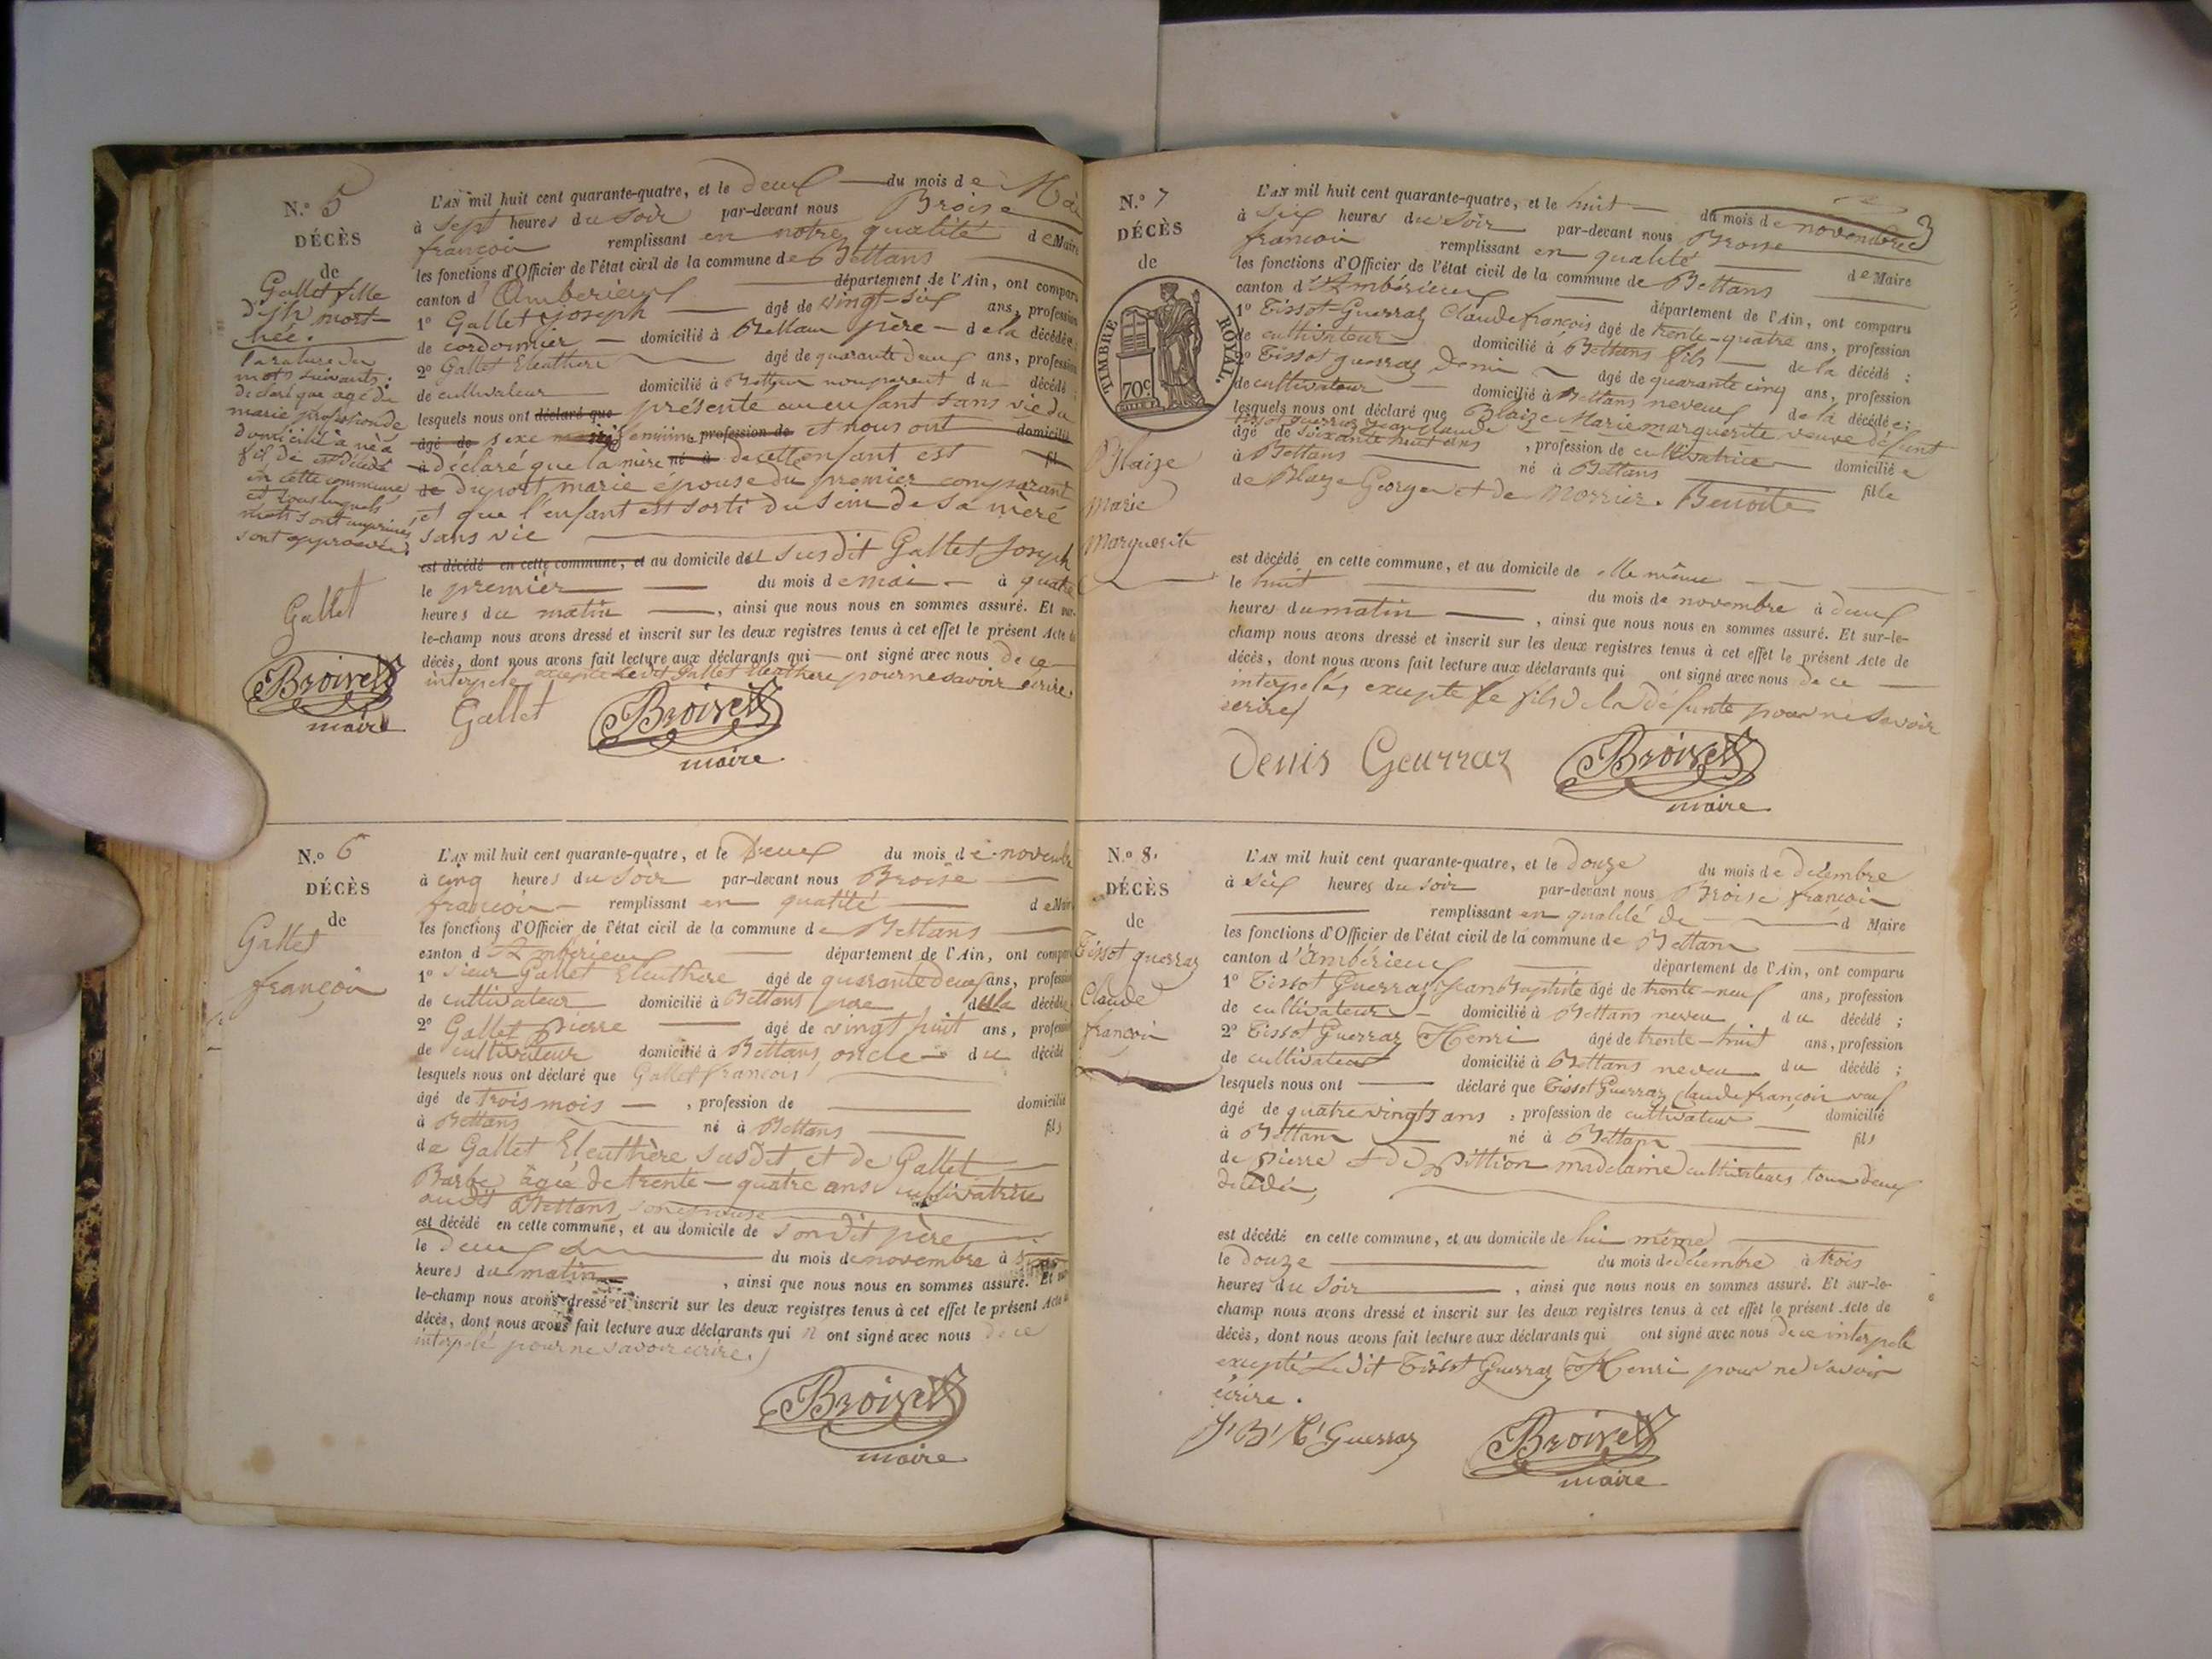 N.° 5
DÉCÈS
de
Gallet fille
mort-
née.
mots suivants :
déclaré que agé de
marie profession de
domicilié à né à
fil de est décédé
en cette commune
et tous lesquels
mots sont imprimés
sont approuvés
Gallet
Broise
maire
L'AN mil huit cent quarante-quatre, et le deux du mois de Mai
à sept heures du soir par-devant nous Broise
françois remplissant en notre qualité de Maire
les fonctions d'Officier de l'état civil de la commune de Bettans
canton d'Ambérieux département de l'Ain, ont comparu
1° Gallet joseph âgé de vingt-six ans, profession
de cordonnier domicilié à Bettans père de la décédée
2° Gallet Eleuthere âgé de quarante deux ans, profession
de cultivateur domicilié à Bettans non parent du décédé
lesquels nous ont déclaré que présenté un enfant sans vie du
âgé de sexe feminin profession de et nous ont domicilié
à déclaré que la mère né à de cet enfant est fil
de Dupont marie épouse du premier comparant
et que l'enfant est sorti du sein de sa mère
sans vie
est décédé en cette commune, et au domicile du susdit Gallet Joseph
le premier du mois de mai à quatre
heures du matin, ainsi que nous nous en sommes assuré. Et sur-
le-champ nous avons dressé et inscrit sur les deux registres tenus à cet effet le présent Acte de
décès, dont nous avons fait lecture aux déclarants qui ont signé avec nous de ce
interpelé excepté ledit Gallet Eleuthere pour ne savoir écrire.
Gallet Broise
maire
N.° 6
DÉCÈS
de
Gallet
françois
L'AN mil huit cent quarante-quatre, et le Deux du mois de novembre
à cinq heures du soir par-devant nous Broise
françois remplissant en qualité de Maire
les fonctions d'Officier de l'état civil de la commune de Bettans
canton d'Ambérieux département de l'Ain, ont comparu
1° sieur Gallet Eleuthère âgé de quarante deux ans, profession
de cultivateur domicilié à Bettans père du décédé
2° Gallet pierre âgé de vingt huit ans, profession
de cultivateur domicilié à Bettans oncle du décédé
lesquels nous ont déclaré que Gallet francois
âgé de trois mois, profession de domicilié
à Bettans né à Bettans fils
de Gallet Eleuthère susdit et de Gallet
Barbe âgée de trente-quatre ans cultivatrice
audit Bettans, son epouse
est décédé en cette commune, et au domicile de son dit père
le Deux du mois de novembre à
heures du matin, ainsi que nous nous en sommes assuré. Et sur-
le-champ nous avons dressé et inscrit sur les deux registres tenus à cet effet le présent Acte de
décès, dont nous avons fait lecture aux déclarants qui n'ont signé avec nous de ce
interpelé pour ne savoir écrire.
Broise
maire
N.° 7
DÉCÈS
de
TIMBRE ROYAL.
70c
Blaize
Marie
Marguerite
L'AN mil huit cent quarante-quatre, et le huit du mois de novembre
à six heures du soir par-devant nous Broise
françois remplissant en qualité de Maire
les fonctions d'Officier de l'état civil de la commune de Bettans
canton d'Ambérieux département de l'Ain, ont comparu
1° Tissot-Guerraz Claude françois âgé de trente-quatre ans, profession
de cultivateur domicilié à Bettans fils de la décédé ;
2° Tissot guerraz Denis âgé de quarante cinq ans, profession
de cultivateur domicilié à Bettans neveux de la décédée ;
lesquels nous ont déclaré que Blaize Marie marguerite veuve défunt
tissot guerraz jean claude
âgé de soixante huit ans, profession de cultivatrice domiciliée
à Bettans né à Bettans fille
de Blaize George et de Morrier Benoite
est décédé en cette commune, et au domicile de elle même
le huit du mois de novembre à deux
heures du matin, ainsi que nous nous en sommes assuré. Et sur-le-
champ nous avons dressé et inscrit sur les deux registres tenus à cet effet le présent Acte de
décès, dont nous avons fait lecture aux déclarants qui ont signé avec nous de ce
interpelés excepté le fils de la défunte pour ne savoir
écrire
Denis Geurraz Broise
maire
N.° 8.
DÉCÈS
de
Tissot guerraz
Claude
françois
L'AN mil huit cent quarante-quatre, et le douze du mois de décembre
à six heures du soir par-devant nous Broise françois
remplissant en qualité de d Maire
les fonctions d'Officier de l'état civil de la commune de Bettans
canton d'Ambérieux département de l'Ain, ont comparu
1° Tissot Guerraz Jean Baptiste âgé de trente-neuf ans, profession
de cultivateur domicilié à Bettans neveu du décédé ;
2° Tissot Guerraz Henri âgé de trente-huit ans, profession
de cultivateur domicilié à Bettans neveu du décédé ;
lesquels nous ont déclaré que Tissot Guerraz Claude françois veuf
âgé de quatre vingts ans, profession de cultivateur domicilié
à Bettans né à Bettans fils
de pierre et de pittion madelaine cultivateurs tous deux
décédés,
est décédé en cette commune, et au domicile de lui même
le douze du mois de décembre à trois
heures du soir, ainsi que nous nous en sommes assuré. Et sur-le-
champ nous avons dressé et inscrit sur les deux registres tenus à cet effet le présent Acte de
décès, dont nous avons fait lecture aux déclarants qui ont signé avec nous de ce interpelé
excepté ledit Tissot Guerraz Henri pour ne savoir
écrire.
J' B' T' Guerraz Broise
maire